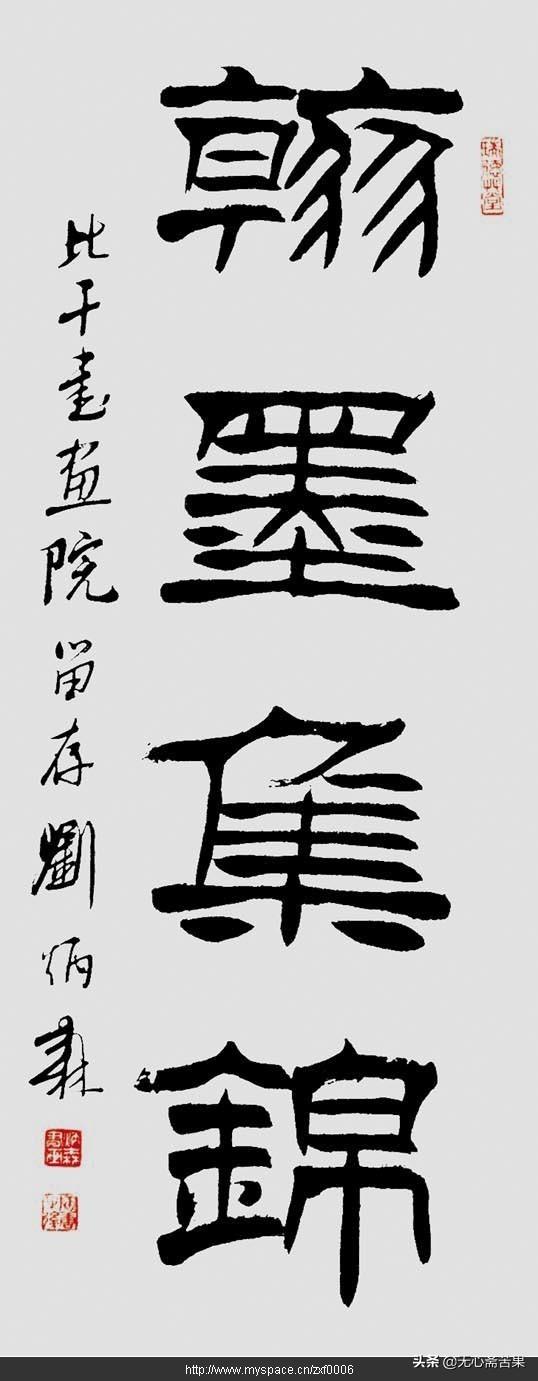 翰墨集錦
比干書画院留存劉炳森
http://www.myspace.cn/zxf0006
头条 @无心斋苦果